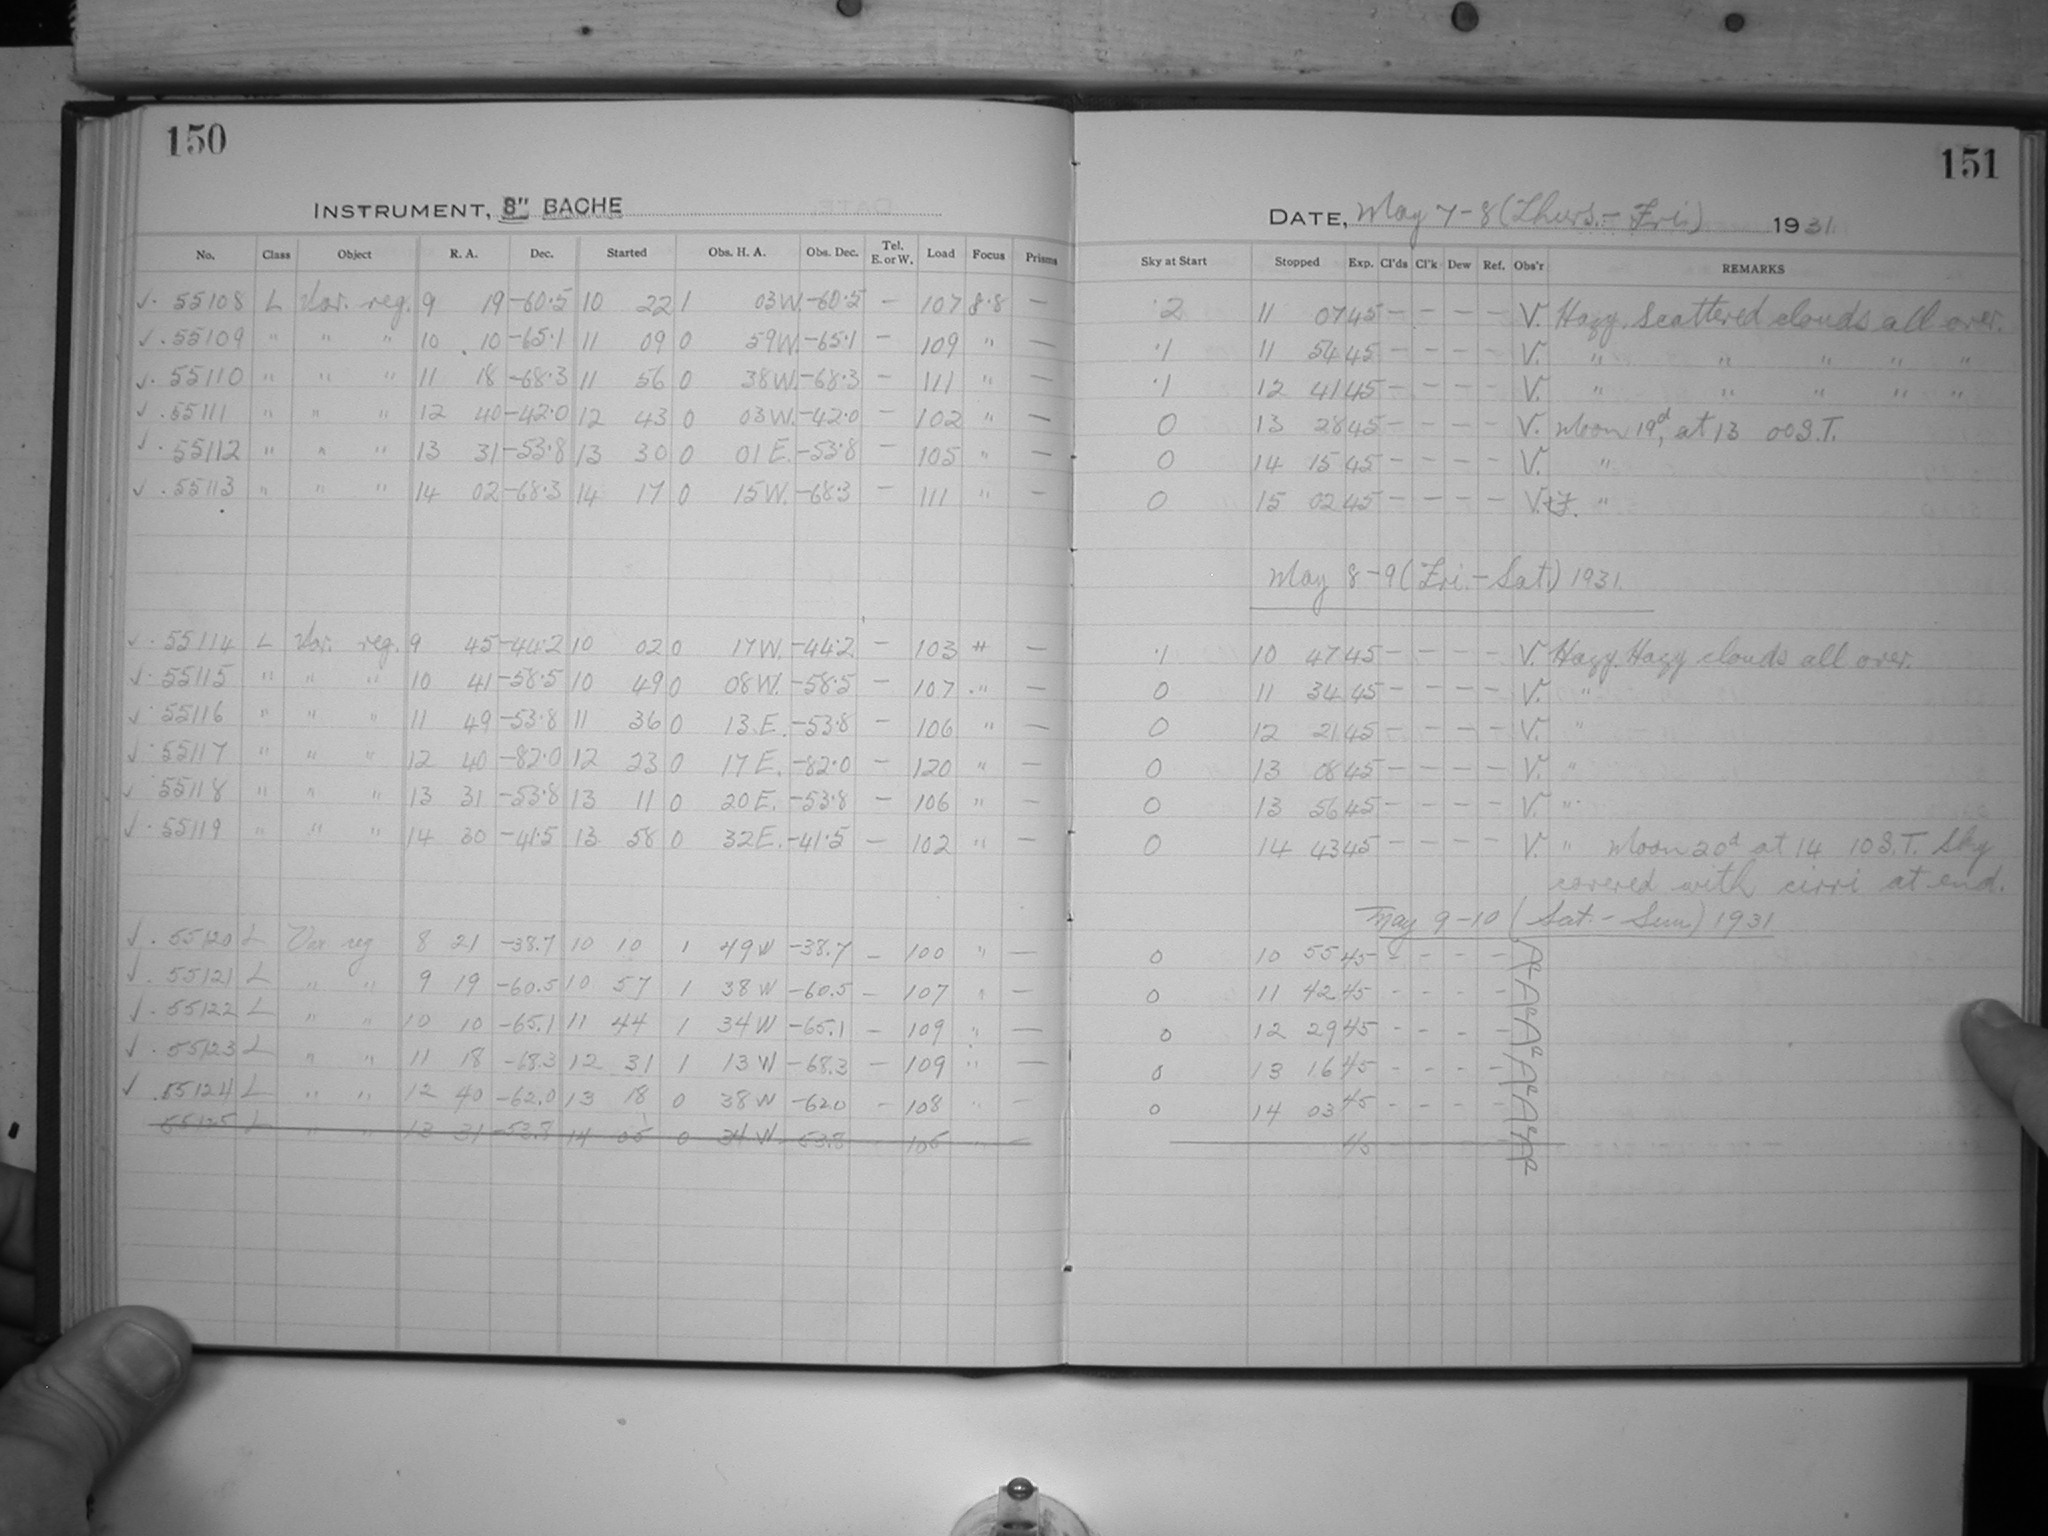 150
INSTRUMENT, 8" BACHE
No. Class Object R. A. Dec. Started Obs. H. A. Obs. Dec. Tel. E. or W. Load Focus Prisms
√. 55108 L Var. reg. 9 19 -60.5 10 22 1 03 W. -60.5 - 107 8.8 -
√. 55109 " " " 10 10 -65.1 11 09 0 59 W. -65.1 - 109 " -
√. 55110 " " " 11 18 -68.3 11 56 0 38 W. -68.3 - 111 " -
√. 55111 " " " 12 40 -42.0 12 43 0 03 W. -42.0 - 102 " -
√. 55112 " " " 13 31 -53.8 13 30 0 01 E. -53.8 - 105 " -
√. 55113 " " " 14 02 -68.3 14 17 0 15 W. -68.3 - 111 " -
√. 55114 L Var. reg. 9 45 -44.2 10 02 0 17 W. -44.2 - 103 " -
√. 55115 " " " 10 41 -58.5 10 49 0 08 W. -58.5 - 107 " -
√. 55116 " " " 11 49 -53.8 11 36 0 13 E. -53.8 - 106 " -
√. 55117 " " " 12 40 -82.0 12 23 0 17 E. -82.0 - 120 " -
√. 55118 " " " 13 31 -53.8 13 11 0 20 E. -53.8 - 106 " -
√. 55119 " " " 14 30 -41.5 13 58 0 32 E. -41.5 - 102 " -
√. 55120 L Var reg 8 21 -38.7 10 10 1 49 W -38.7 - 100 " -
√. 55121 L " " 9 19 -60.5 10 57 1 38 W -60.5 - 107 " -
√. 55122 L " " 10 10 -65.1 11 44 1 34 W -65.1 - 109 " -
√. 55123 L " " 11 18 -68.3 12 31 1 13 W -68.3 - 109 " -
√. 55124 L " " 12 40 -62.0 13 18 0 38 W -62.0 - 108 " -
55125 L " " 13 31 -53.8 14 05 0 34 W -53.8 106 " -
151
DATE, May 7-8 (Thurs. - Fri.) 1931
Sky at Start Stopped Exp. Cl'ds Cl'k Dew Ref. Obs'r REMARKS
.2 11 07 45 - - - - V. Hazy. Scattered clouds all over.
.1 11 54 45 - - - - V. " " " " "
.1 12 41 45 - - - - V. " " " " "
0 13 28 45 - - - - V. Moon 19d, at 13 00 S.T.
0 14 15 45 - - - - V. "
0 15 02 45 - - - - V. "
May 8-9 (Fri. - Sat.) 1931.
.1 10 47 45 - - - - V. Hazy. Hazy clouds all over.
0 11 34 45 - - - - V. "
0 12 21 45 - - - - V. "
0 13 08 45 - - - - V. "
0 13 56 45 - - - - V. "
0 14 43 45 - - - - V. " Moon 20d at 14 10 S.T. Sky
covered with cirri at end.
May 9-10 (Sat. - Sun) 1931
0 10 55 45 - - - -
0 11 42 45 - - - -
0 12 29 45 - - - -
0 13 16 45 - - - -
0 14 03 45 - - - -
45